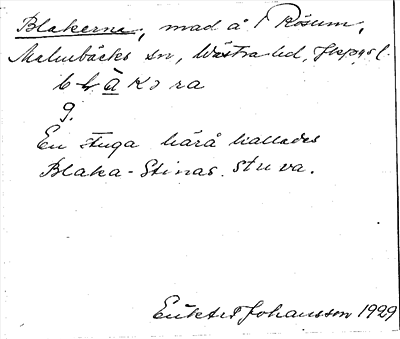 Blakerna, mad å Rösum,
Malmbäcks sn, Västra hd, Jkpgs l.
blàkɔra
g.
En stuga härå kallades
Blaka-Stinas stuva.
Johansson 1929